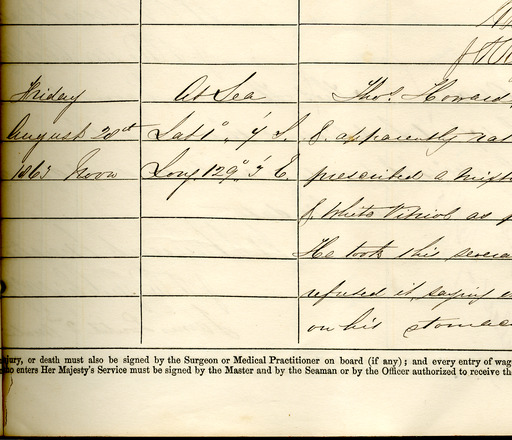 Friday
At Sea
Thos. Howard
August 20th
Lat 1° 4' S.
& apparently
1863 Noon
Long 129° 3' E.
prescribed a
& White Vitriol, as
He took this
refused it, saying
on his stomac
jury, or death must also be signed by the Surgeon or Medical Practitioner on board (if any); and every entry of wag
ho enters Her Majesty's Service must be signed by the Master and by the Seaman or by the Officer authorized to receive th